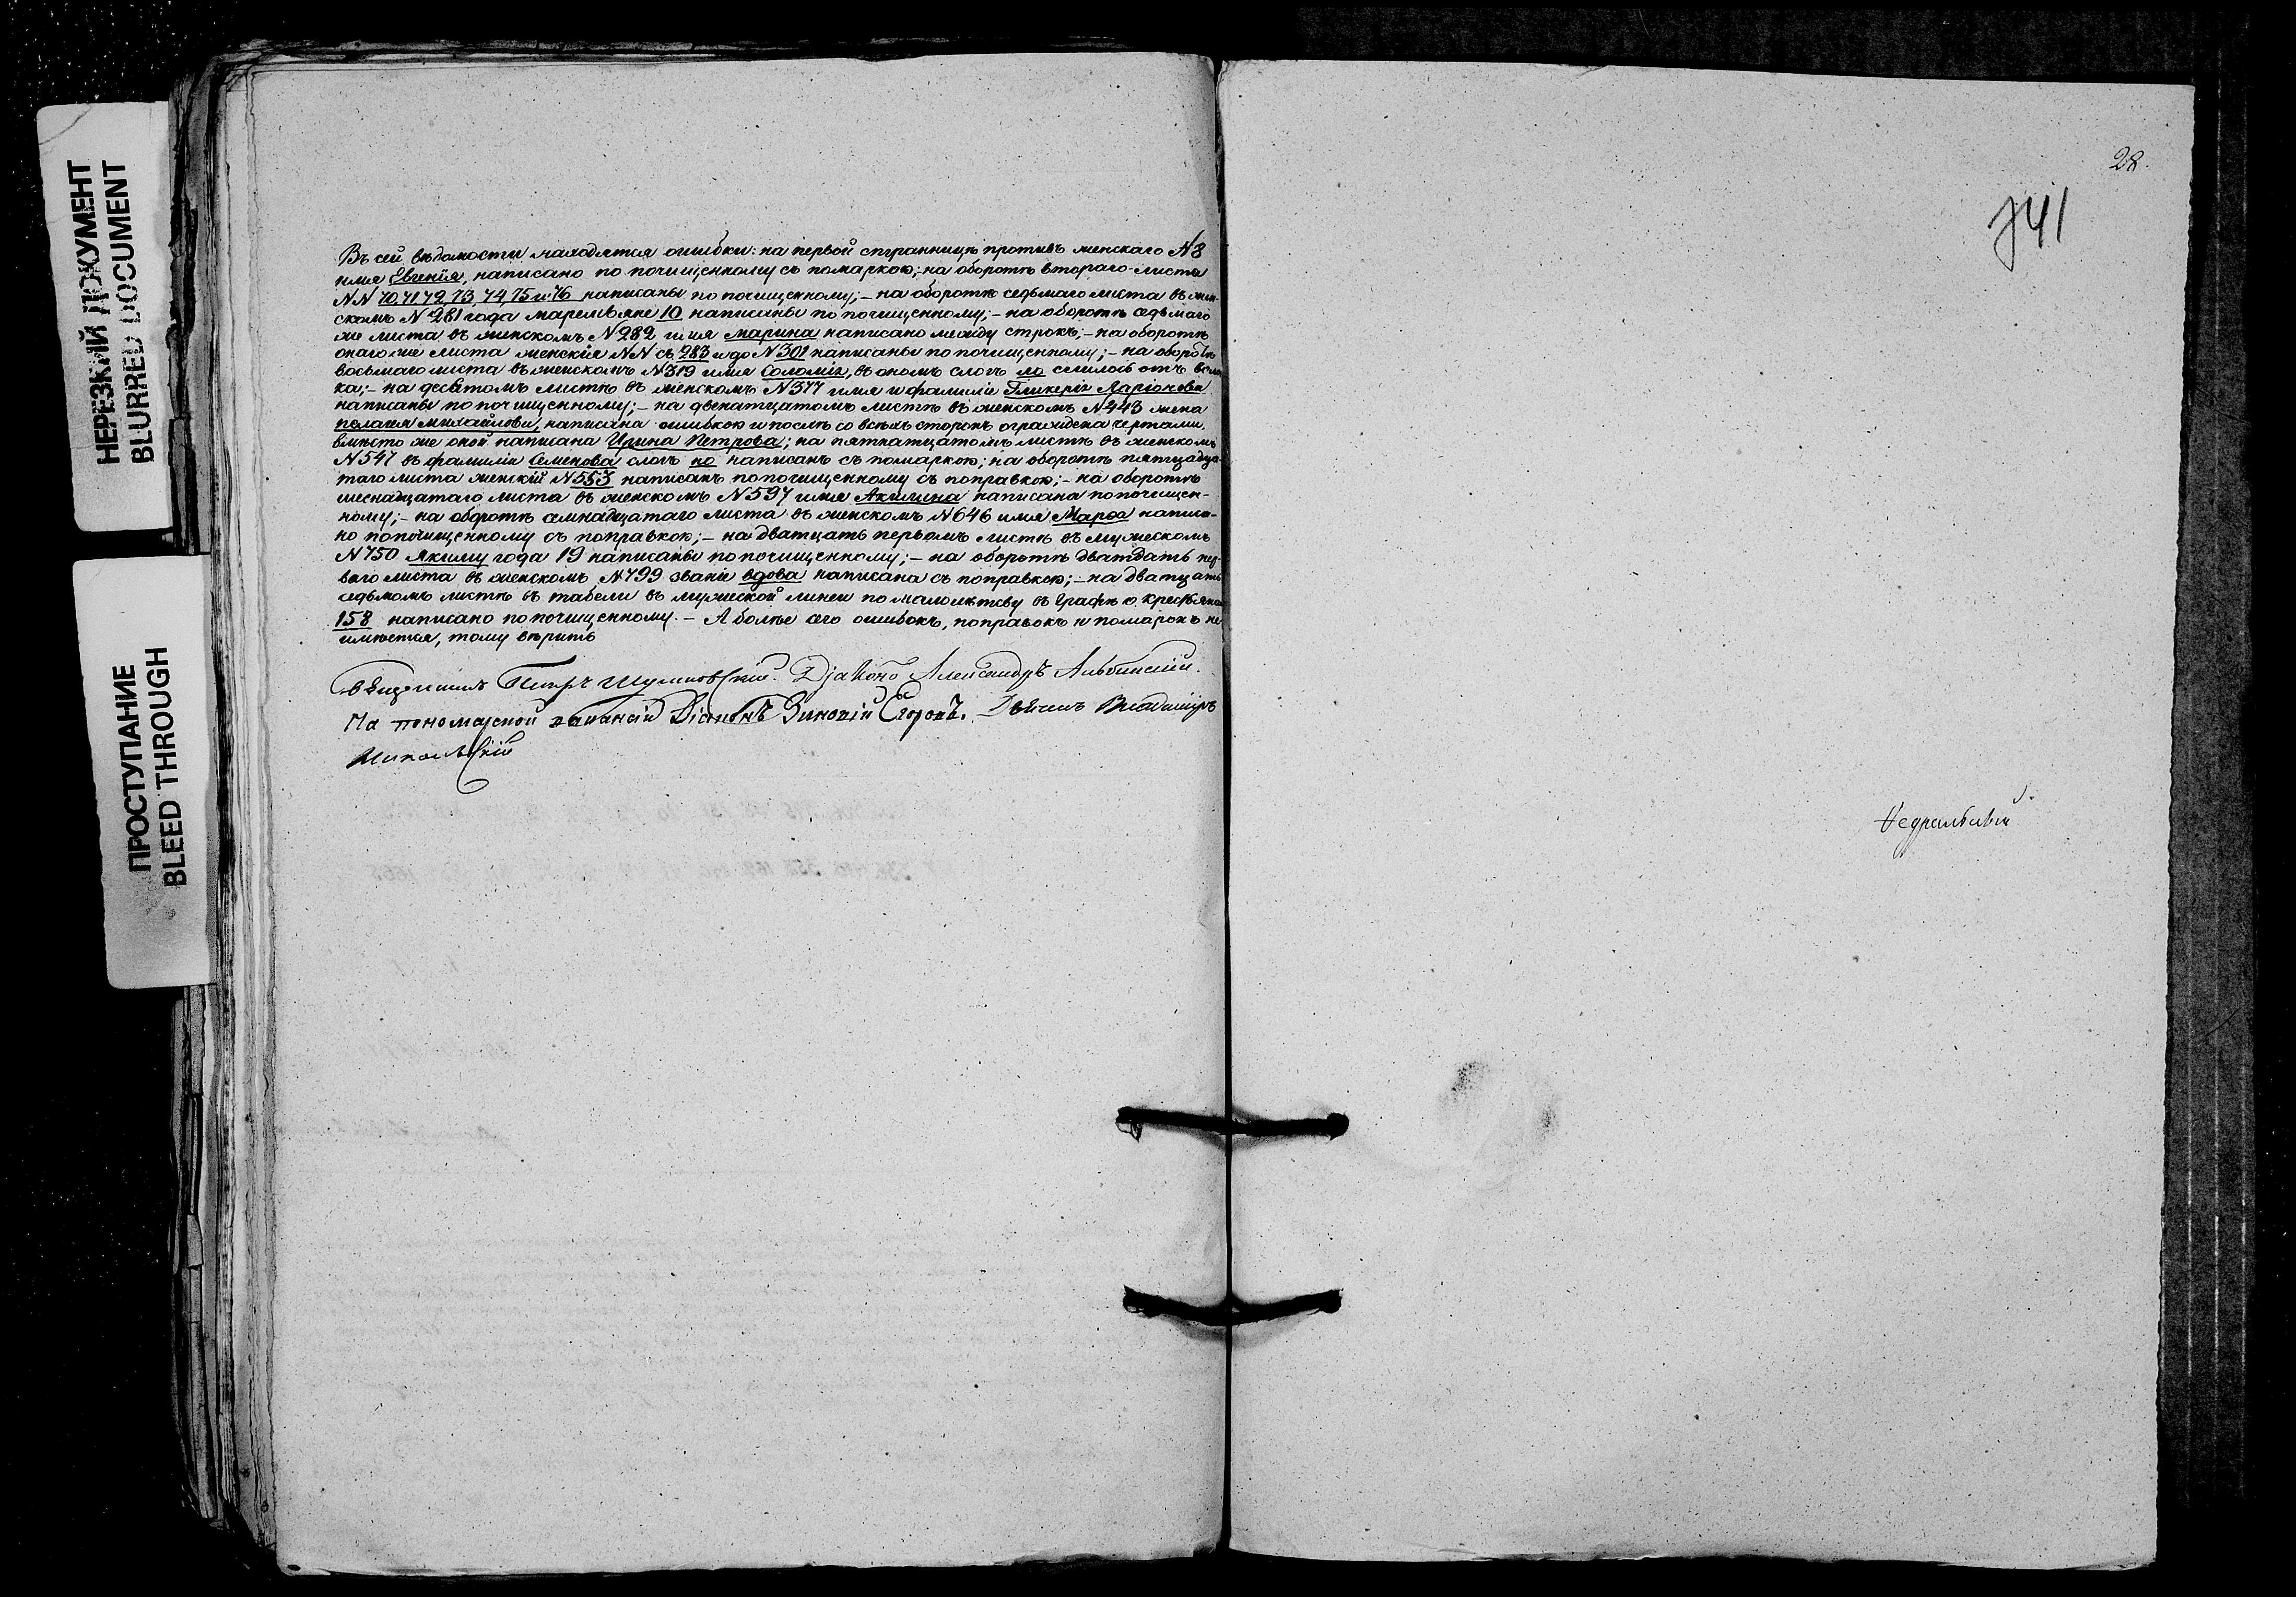 НЕРЕЗКИЙ ДОКУМЕНТ
BLURRED DOCUMENT
ПРОСТУПАНИЕ
BLEED THROUGH
Въ сей вѣдомости находятся ошибки: на первой странницѣ противъ женскаго №8
имя Евгенія, написано по почищенному съ помаркою; на оборотѣ втораго листа
NN 70, 71, 72, 73, 74, 75 и 76 написаны по почищенному; – на оборотѣ седьмаго листа въ жен-
скомъ N 281 года маремьяне 10 написаны по почищенному; – на оборотѣ седьмаго
же листа въ женскомъ N 282 имя Марина написано между строкъ; – на оборотѣ
онаго же листа женскія NN съ 283 и до N 301 написаны по почищенному; – на оборотѣ
восьмаго листа въ женскомъ N 319 имя Соломія, въ ономъ слогъ ло
ка; – на десятомъ листѣ въ женскомъ N 377 имя и фамиліе Гликерія Ларіонова
написаны по почищенному; – на двенатцатомъ листѣ въ женскомъ N 443 жена
пелагея михайлова, написана ошибкою и послѣ со всѣхъ сторонъ ограждена чертами,
вмѣсто же оной написана Ирина Петрова; на пятнатцатомъ листѣ въ женскомъ
N 547 въ фамиліи Семенова слогъ но написанъ съ помаркою; на оборотѣ пятнадца-
таго листа женскій N 553 написанъ по почищенному съ поправкою; – на оборотѣ
шеснадцатаго листа въ женскомъ N 597 имя Акилина написана по почищен-
ному; – на оборотѣ семнадцатаго листа въ женскомъ N 646 имя Марѳа написа-
но по почищенному съ поправкою; – на дватцать первомъ листѣ въ мужескомъ
N 750 Якиму года 19 написаны по почищенному; – на оборотѣ дватцать пер-
ваго листа въ женскомъ N 799 званіе вдова написана съ поправкою; – на дватцать
седьмомъ листѣ въ табели въ мужеской линеи по малолетсву въ графѣ о крестьянах
158 написано по почищенному. – А болѣе сего ошибокъ, поправокъ и помарокъ не
имѣется, тому вѣрить
Священникъ Петръ Шумовскій. Діаконъ Александръ Альбинскій.
На пономарской вакансіи Діаконъ Зиновій Егоровъ. Дьячекъ Владимиръ
Никольскій
28.
741